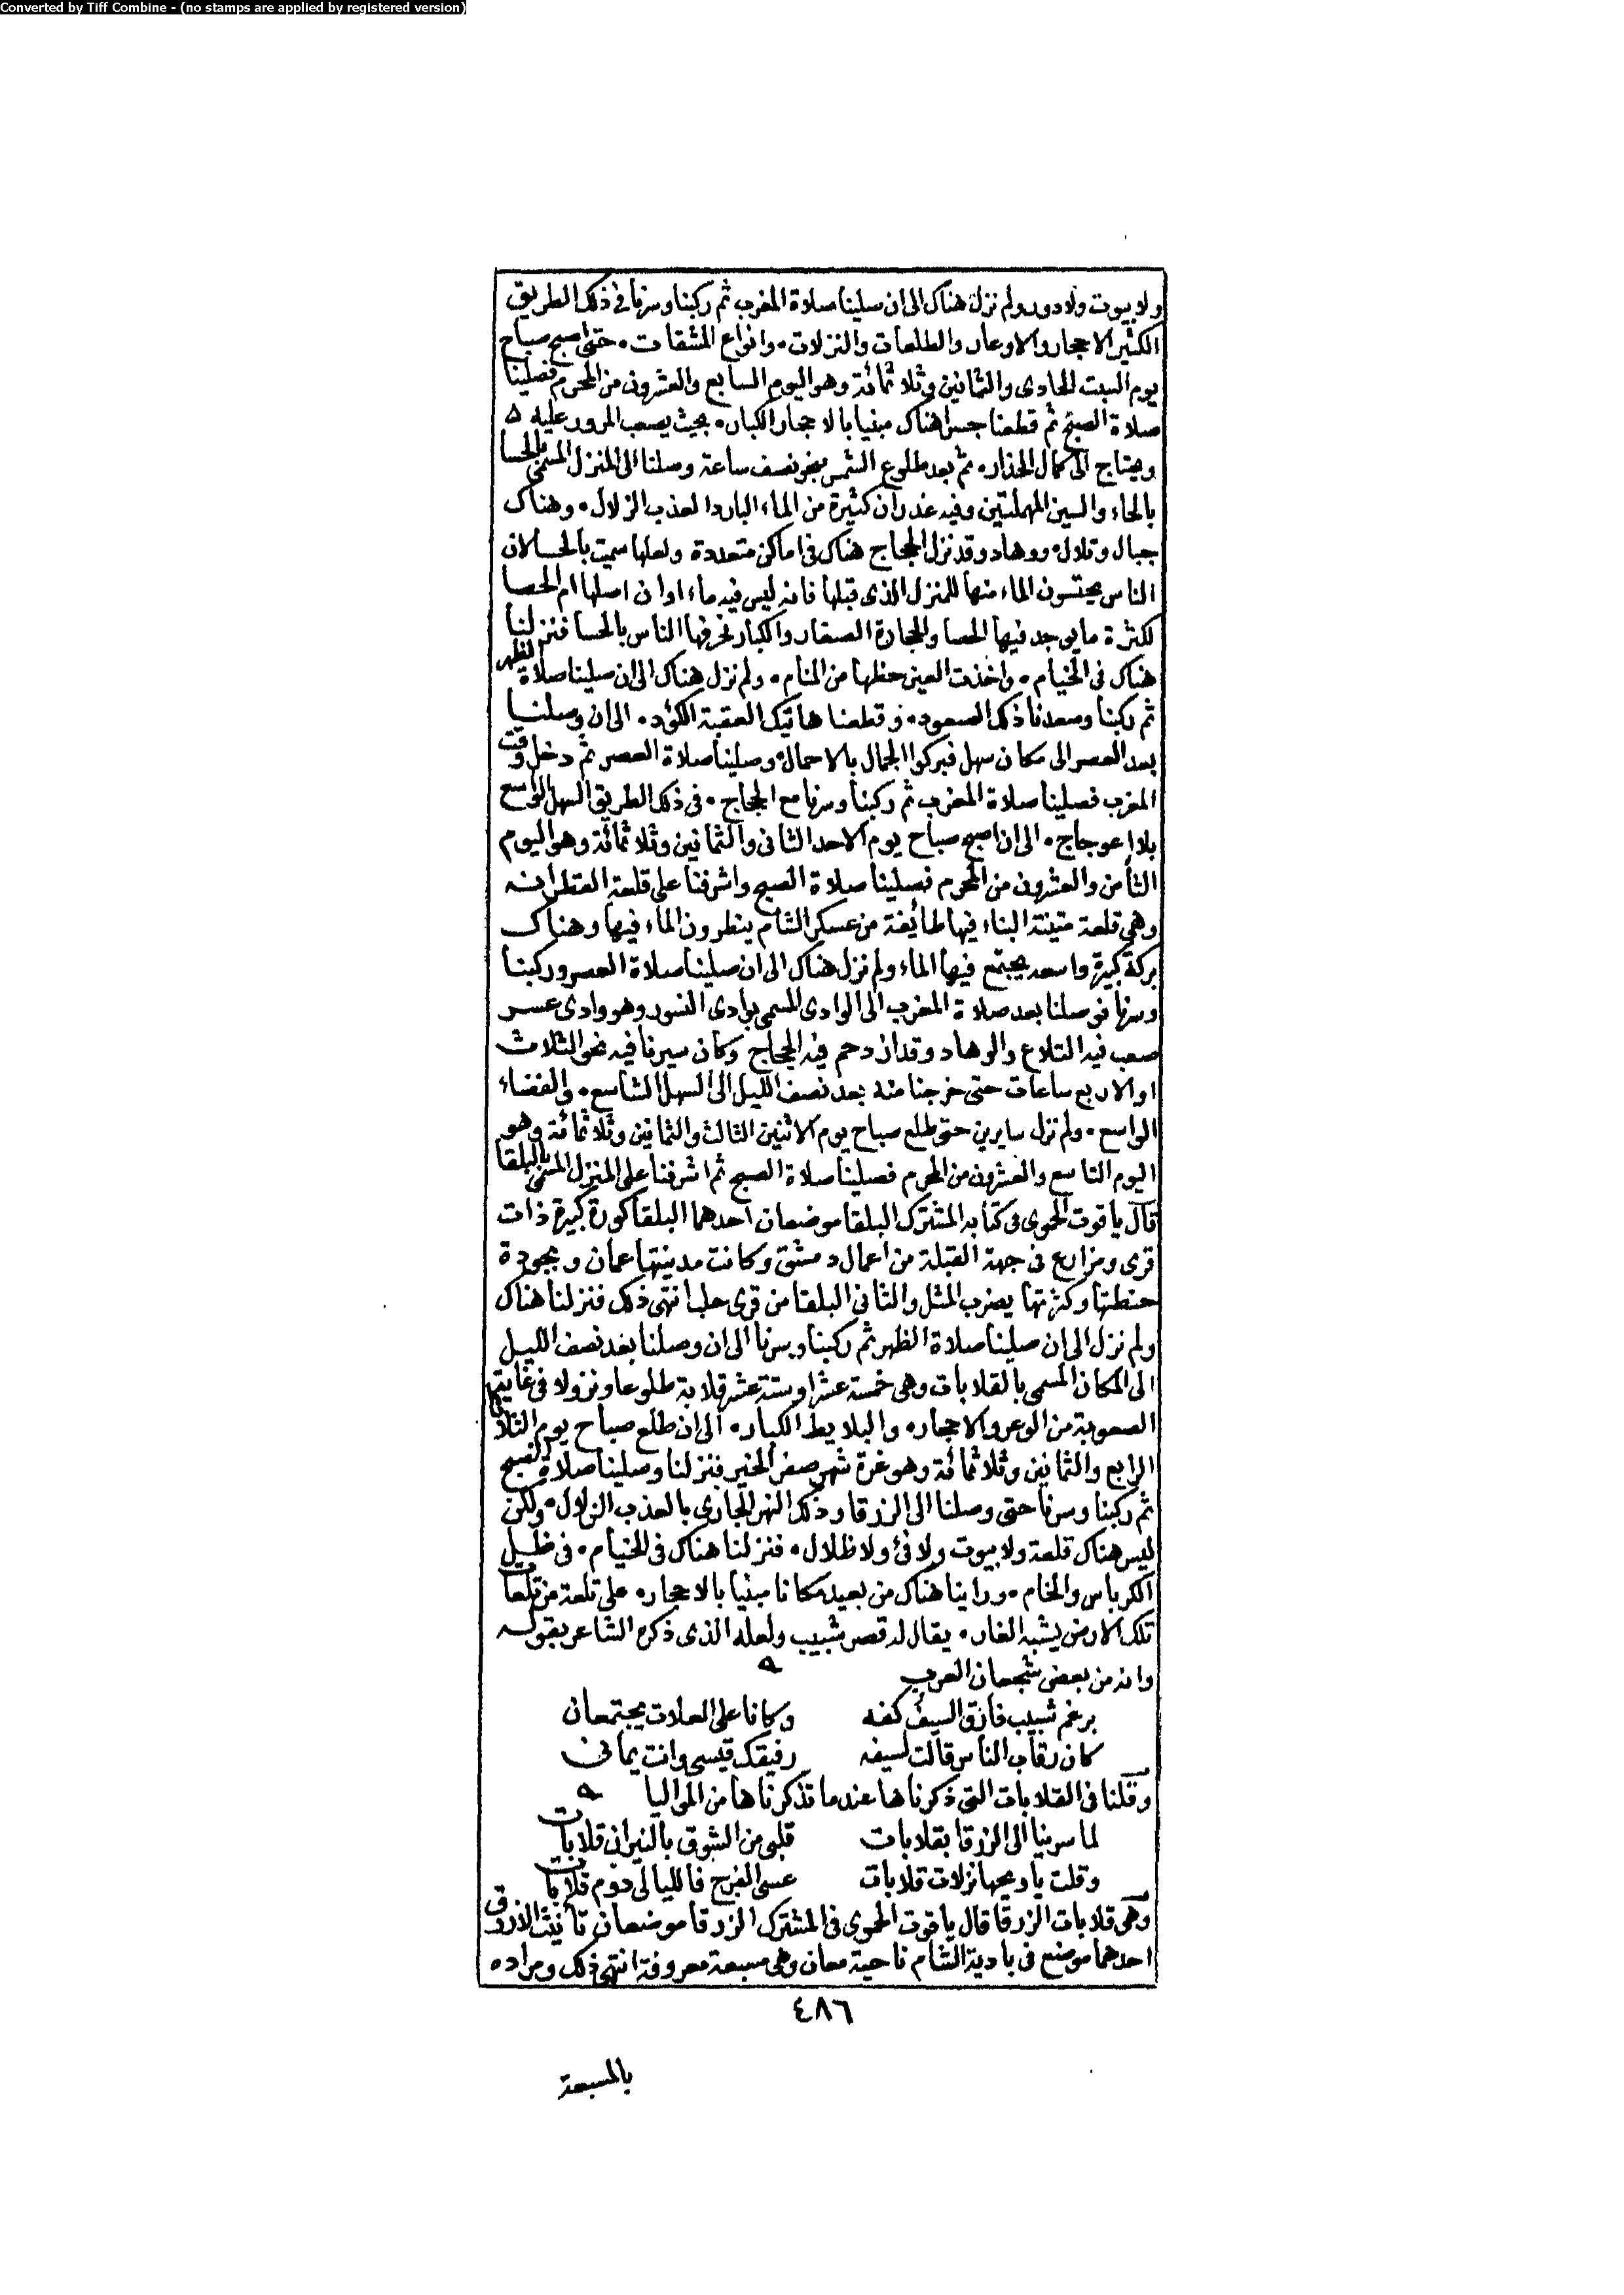 Converted by Tiff Combine - (no stamps are applied by registered version)
ولا بيوت ولا دور ولم نزل هناك الى ان صلينا صلاة المغرب ثم ركبنا وسرنا في ذلك الطريق
الكثير الاحجار والاوعار والطلعات والنزلات، وانواع المشقات، حتى اصبح صباح
يوم السبت الحادى والثمانين وثلاثمائة وهو اليوم السابع والعشرون من المحرم فصلينا
صلاة الصبح ثم قطعنا جسرا هناك مبنيا بالاحجار الكبار، بحيث يصعب المرور عليه
ويحتاج الى كمال الحذار، ثم بعد طلوع الشمس بنحو نصف ساعة وصلنا الى المنزل المسمى بالحسا
بالحاء والسين المهملتين وفيه غدران كثيرة من الماء البارد العذب الزلال، وهناك
جبال وتلال، ووهاد وقد نزل الحجاج هناك في اماكن متعددة ولعلها سميت بالحسا لان
الناس يحتسون الماء منها للمنزل الذى قبلها فانه ليس فيه ماء اوان اصلها ام الحصا
لكثرة ما يوجد فيها الحصا والحجارة الصغار والكبار فحرفها الناس بالحسا فنزلنا
هناك فى الخيام، واخذت العين حظها من المنام، ولم نزل هناك الى ان صلينا صلاة الظهر
ثم ركبنا وصعدنا ذلك الصعود، وقطعنا هاتيك العقبة الكؤد، الى ان وصلنا
بعد العصر الى مكان سهل فبركوا الجمال بالاحمال، وصلينا صلاة العصر ثم دخل وقت
المغرب فصلينا صلاة المغرب ثم ركبنا وسرنا مع الحجاج، فى ذلك الطريق السهل الواسع
بلا اعوجاج، الى ان اصبح صباح يوم الاحد الثانى والثمانين وثلاثمائة وهو اليوم
الثامن والعشرون من المحرم فصلينا صلاة الصبح واشرفنا على قلعة القطرانه
وهى قلعة متينة البناء فيها طائفة من عسكر الشام ينطرون الماء فيها وهناك
بركة كبيرة واسعه يجتمع فيها الماء ولم نزل هناك الى ان صلينا صلاة العصر وركبنا
وسرنا فوصلنا بعد صلاة المغرب الى الوادى المسمى بوادى النسور وهو وادى عسر
صعب فيه التلاع والوهاد وقد ازدحم فيه الحجاج وكان سيرنا فيه نحو الثلاث
او الاربع ساعات حتى خرجنا منه بعد نصف الليل الى السهل الشاسع، والفضاء
الواسع، ولم نزل سايرين حتى طلع صباح يوم الاثنين الثالث والثمانين وثلاثمائة وهو
اليوم التاسع والعشرون من المحرم فصلينا صلاة الصبح ثم اشرفنا على المنزل المسمى بالبلقا
قال ياقوت الحموى فى كتابه المشترك البلقا موضعان احدهما البلقا كورة كبيرة ذات
قرى ومزارع فى جهة القبلة من اعمال دمشق وكانت مدينتها عمان وبجودة
حنطتها وكثرتها يضرب المثل والثانى البلقا من قرى حلب انتهى ذلك فنزلنا هناك
ولم نزل الى ان صلينا صلاة الظهر ثم ركبنا وسرنا الى ان وصلنا بعد نصف الليل
الى المكان المسمى بالقلابات وهى خمسة عشر او ستة عشر قلابة طلوعا ونزولا فى غاية
الصعوبة من الوعر والاحجار، والبلايط الكبار، الى ان طلع صباح يوم الثلاثا
الرابع والثمانين وثلاثمائة وهو غرة شهر صفر الخير فنزلنا وصلينا صلاة الصبح
ثم ركبنا وسرنا حتى وصلنا الى الزرقا وذلك النهر الجارى بالعذب الزلال، ولكن
ليس هناك قلعة ولا بيوت ولا فئ ولا ظلال، فنزلنا هناك فى الخيام، فى ظليل
الكرباس والخام، وراينا هناك من بعيد مكانا مبنيا بالاحجار، على تلعة من تلعات
تلك الارض يشبه الغار، يقال له قصر شبيب ولعله الذى ذكره الشاعر بقوله
وانه من بعض شجعان العرب
برغم شبيب فارق السيف كفه وكانا على العلات يجتمعان
كان رقاب الناس قالت لسيفه رفيقك قيسى وانت يمانى
وقلنا فى القلابات التى ذكرناها عندما تذكرناها من المواليا
لما سرينا الى الزرقا بقلابات قلبى من الشوق بالنيران قلابات
وقلت يا ويحها نزلات قلابات عسى الفرج فالليالى دوم قلابات
وهى قلابات الزرقا قال ياقوت الحموى فى المشترك الزرقا موضعان تانيث الازرق
احدهما موضع فى بادية الشام ناحية معان وهى مسبعة معروفة انتهى ذلك ومراده
٤٨٦
بالمسبعة